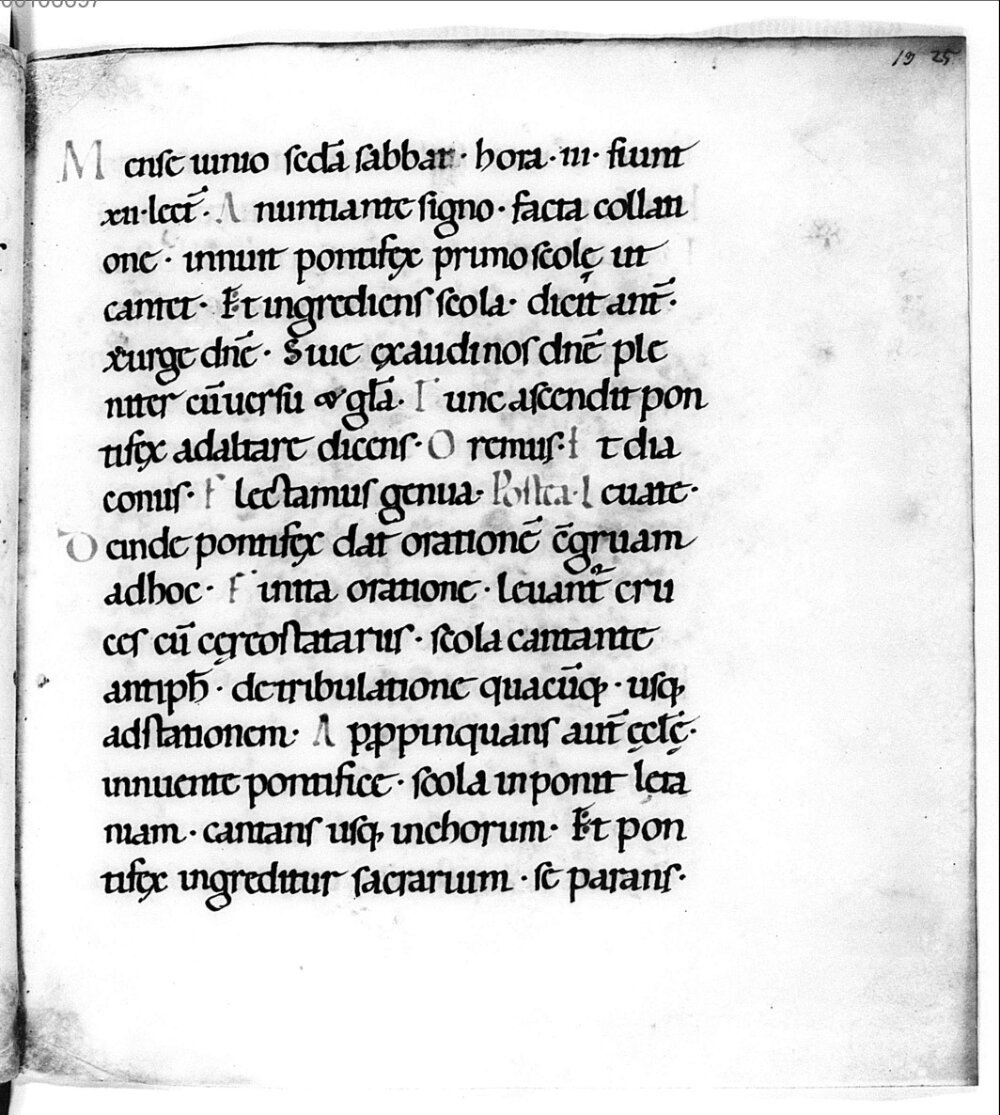 19 25
Mense iunio scdā sabbat· hora·iii· fiunt
xii·lect̄· Annuntiante signo· facta collati
one· innuit pontifex primo scolę ut
cantet· Et ingrediens scola· dicit ant̄·
exurge dnē· Siue exaudi nos dnē ple
niter cū uersu & glā· Tunc ascendit pon
tifex ad altare dicens· Oremus· Et dia
conus· Flectamus genua· Postea· Leuate·
Deinde pontifex dat orationē c̄gruam
ad hoc· Finita oratione· leuant̄ cru
ces cū cereostatariis· scola cantante
antiph̄· de tribulatione quacūq; · usq;
ad stationem· Appropinquans aut̄ ęcłę·
innuente pontifice· scola inponit leta
niam· cantans usq; in chorum· Et pon
tifex ingreditur sacrarium · se parans·